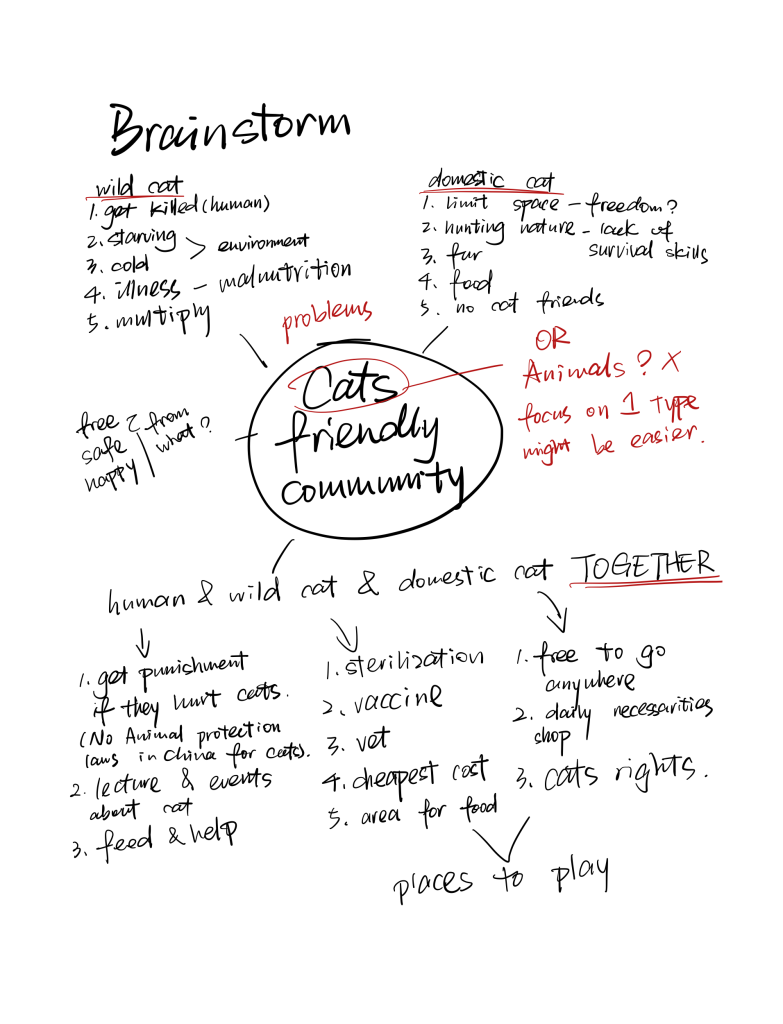 Brainstorm
wild cat
1. get killed (human)
2. starving
3. cold
> environment
4. illness – malnutrition
5. multiply
domestic cat
1. limit space – freedom?
2. hunting nature – lack of
survival skills
3. fur
4. food
5. no cat friends
problems
Cats
friendly
community
OR
Animals? X
focus on 1 type
might be easier.
free
safe
happy
from
what?
human & wild cat & domestic cat TOGETHER
1. get punishment
if they hurt cats.
(No Animal protection
laws in China for cats).
2. lecture & events
about cat
3. feed & help
1. sterilization
2. vaccine
3. vet
4. cheapest cost
5. area for food
1. free to go
anywhere
2. daily necessarities
shop
3. cats rights.
places to play